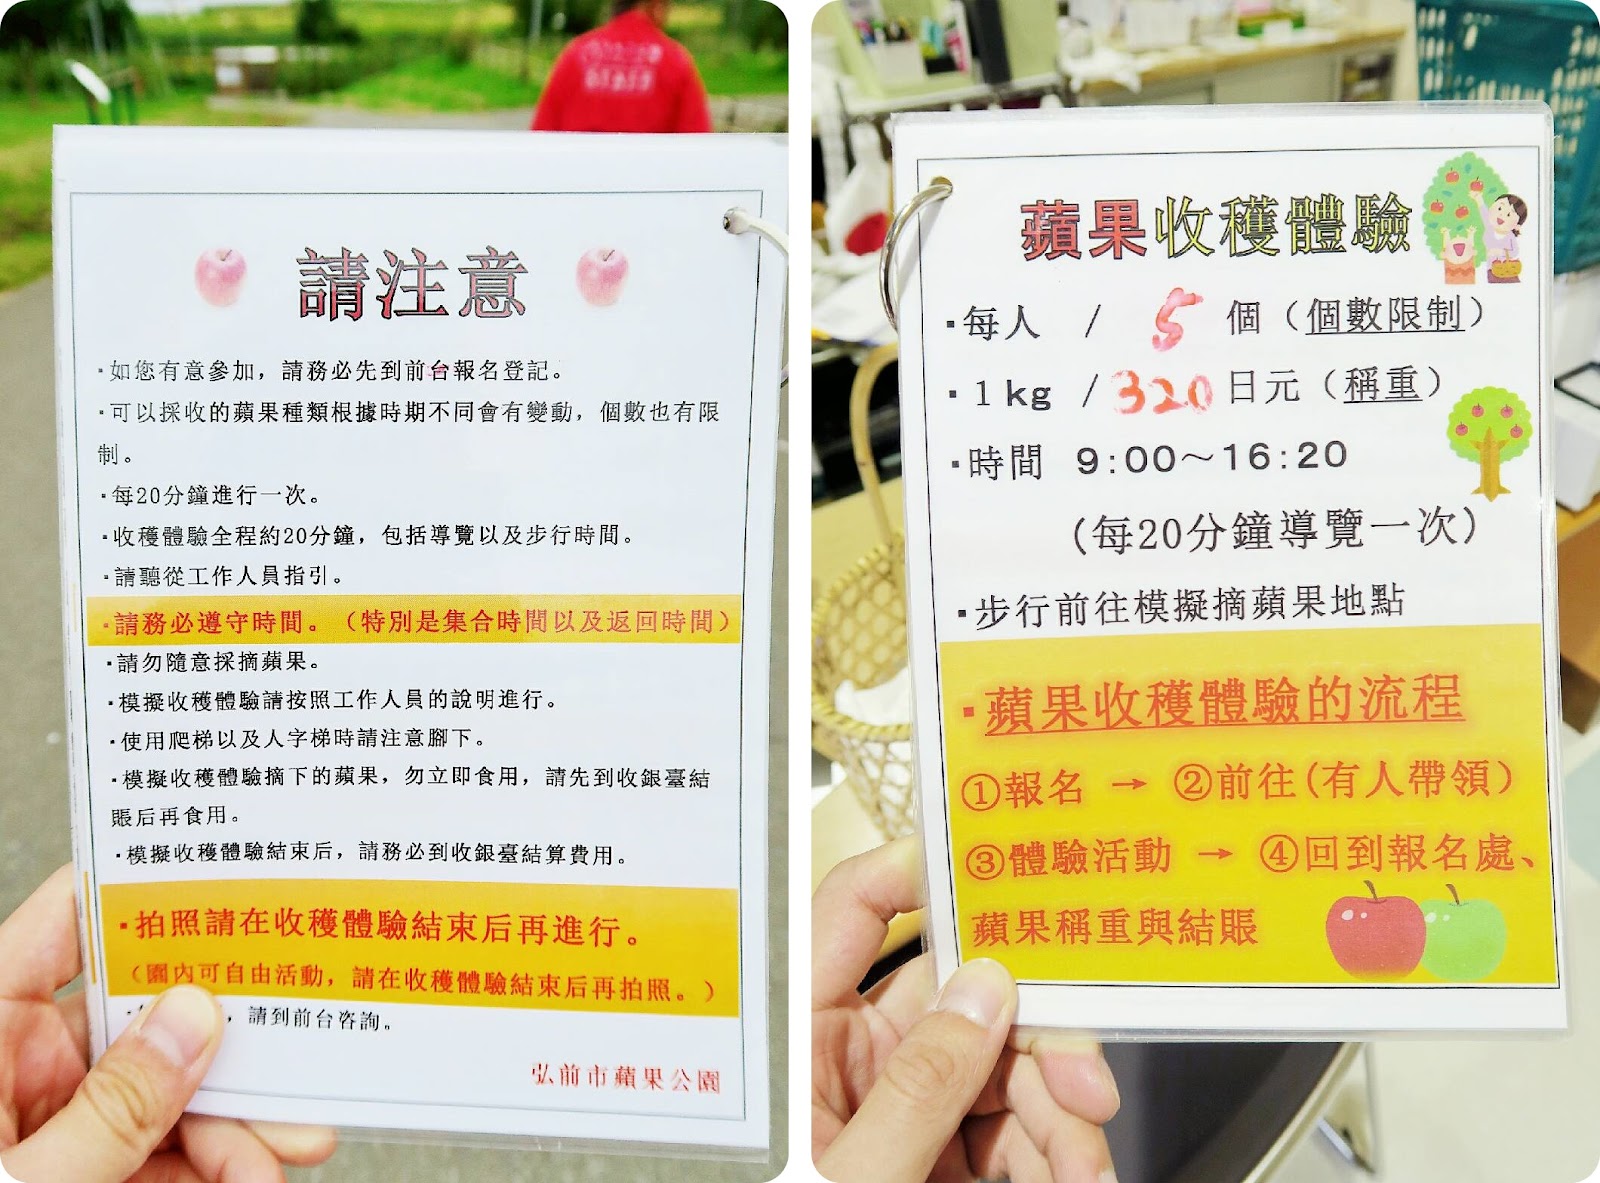 請注意
·如您有意參加，請務必先到前台報名登記。
·可以採收的蘋果種類根據時期不同會有變動，個數也有限
制。
·每20分鐘進行一次。
·收穫體驗全程約20分鐘，包括導覽以及步行時間。
·請聽從工作人員指引。
·請務必遵守時間。（特別是集合時間以及返回時間）
·請勿隨意採摘蘋果。
·模擬收穫體驗請按照工作人員的說明進行。
·使用爬梯以及人字梯時請注意腳下。
·模擬收穫體驗摘下的蘋果，勿立即食用，請先到收銀臺結
賬后再食用。
·模擬收穫體驗結束后，請務必到收銀臺結算費用。
·拍照請在收穫體驗結束后再進行。
（園內可自由活動，請在收穫體驗結束后再拍照。）
，請到前台咨詢。
弘前市蘋果公園
蘋果收穫體驗
·每人 / 5 個（個數限制）
·1kg /320日元（稱重）
·時間 9:00～16:20
(每20分鐘導覽一次)
·步行前往模擬摘蘋果地點
·蘋果收穫體驗的流程
①報名 → ②前往(有人帶領)
③體驗活動 → ④回到報名處、
蘋果稱重與結賬